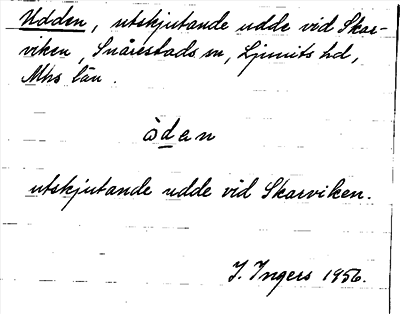 Udden, utskjutande udde vid Skar-
viken, Snårestads sn, Ljunits hd,
Mhs län.
òden
utskjutande udde vid Skarviken.
I. Ingers 1956.